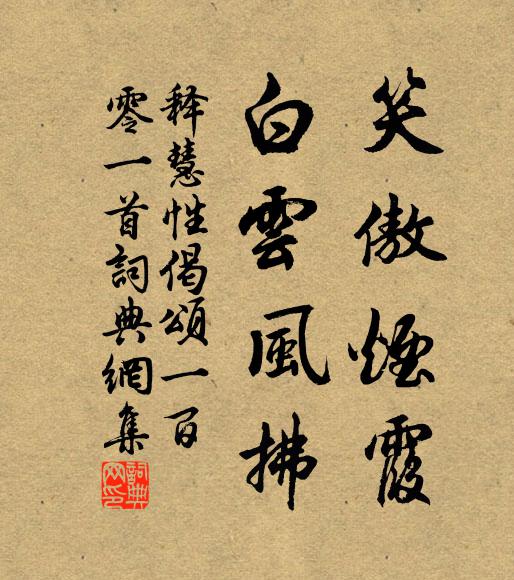 笑傲煙霞
白雲風拂
释慧性偈頌一百
零一首詞典網集
詞典网印